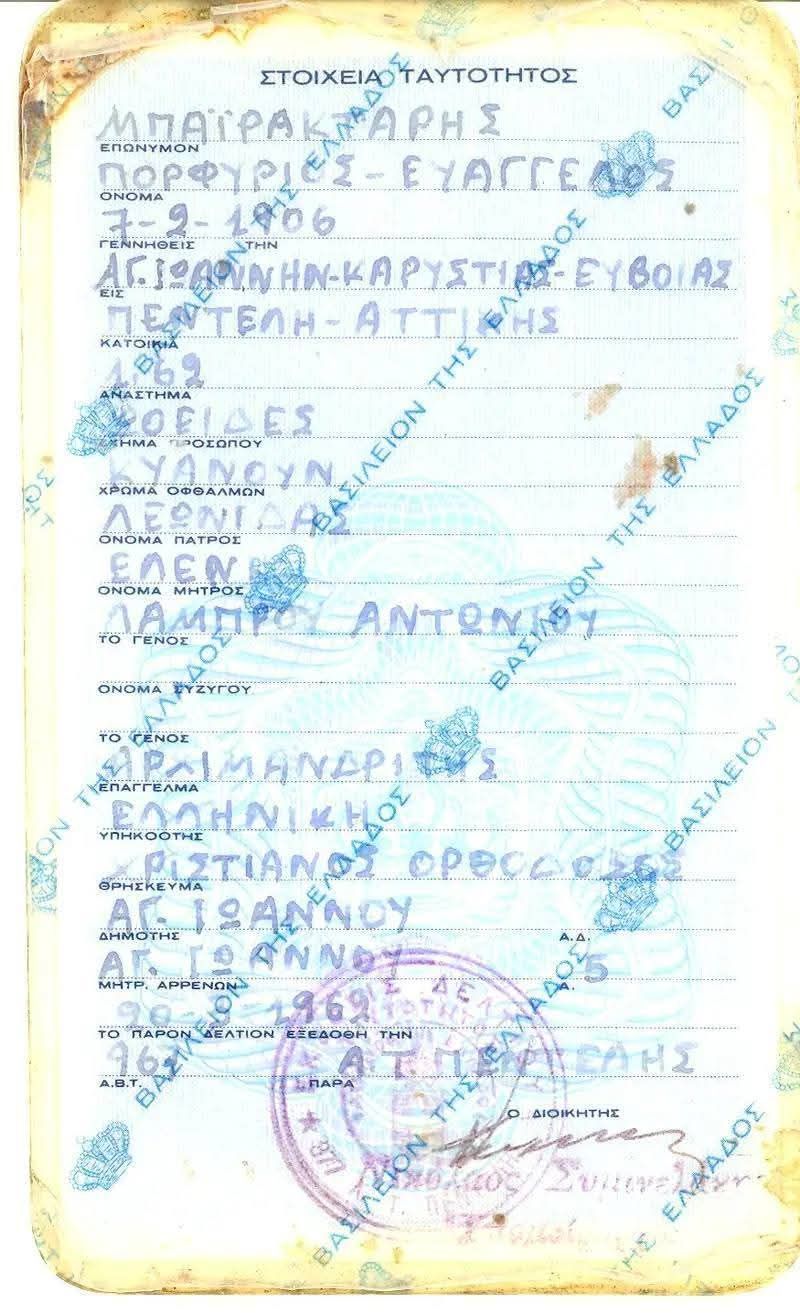 ΣΤΟΙΧΕΙΑ ΤΑΥΤΟΤΗΤΟΣ
ΜΠΑΪΡΑΚΤΑΡΗΣ
ΕΠΩΝΥΜΟΝ
ΠΟΡΦΥΡΙΟΣ-ΕΥΑΓΓΕΛΟΣ
ΟΝΟΜΑ
7-2-1906
ΓΕΝΝΗΘΕΙΣ ΤΗΝ
ΑΓ.ΙΩΑΝΝΗΝ-ΚΑΡΥΣΤΙΑΣ-ΕΥΒΟΙΑΣ
ΕΙΣ
ΠΕΝΤΕΛΗ-ΑΤΤΙΚΗΣ
ΚΑΤΟΙΚΙΑ
1,69
ΑΝΑΣΤΗΜΑ
ΩΟΕΙΔΕΣ
ΣΧΗΜΑ ΠΡΟΣΩΠΟΥ
ΚΥΑΝΟΥΝ
ΧΡΩΜΑ ΟΦΘΑΛΜΩΝ
ΛΕΩΝΙΔΑΣ
ΟΝΟΜΑ ΠΑΤΡΟΣ
ΕΛΕΝΗ
ΟΝΟΜΑ ΜΗΤΡΟΣ
ΛΑΜΠΡΟΥ ΑΝΤΩΝΙΟΥ
ΤΟ ΓΕΝΟΣ
ΟΝΟΜΑ ΣΥΖΥΓΟΥ
ΤΟ ΓΕΝΟΣ
ΑΡΧΙΜΑΝΔΡΙΤΗΣ
ΕΠΑΓΓΕΛΜΑ
ΕΛΛΗΝΙΚΗ
ΥΠΗΚΟΟΤΗΣ
ΧΡΙΣΤΙΑΝΟΣ ΟΡΘΟΔΟΞΟΣ
ΘΡΗΣΚΕΥΜΑ
ΑΓ. ΙΩΑΝΝΟΥ
ΔΗΜΟΤΗΣ Α.Δ.
ΑΓ. ΙΩΑΝΝΟΥ 5
ΜΗΤΡ. ΑΡΡΕΝΩΝ Α.
1969
ΤΟ ΠΑΡΟΝ ΔΕΛΤΙΟΝ ΕΞΕΔΟΘΗ ΤΗΝ
Α.Τ. ΠΕΝΤΕΛΗΣ
Α.Β.Τ. ΠΑΡΑ
Ο ΔΙΟΙΚΗΤΗΣ
Νικόλαος
ΒΑΣΙΛΕΙΟΝ ΤΗΣ ΕΛΛΑΔΟΣ
ΒΑΣΙΛΕΙΟΝ ΤΗΣ ΕΛΛΑΔΟΣ
ΒΑΣΙΛΕΙΟΝ ΤΗΣ ΕΛΛΑΔΟΣ
ΒΑΣΙΛΕΙΟΝ ΤΗΣ ΕΛΛΑΔΟΣ
ΒΑΣΙΛΕΙΟΝ ΤΗΣ ΕΛΛΑΔΟΣ